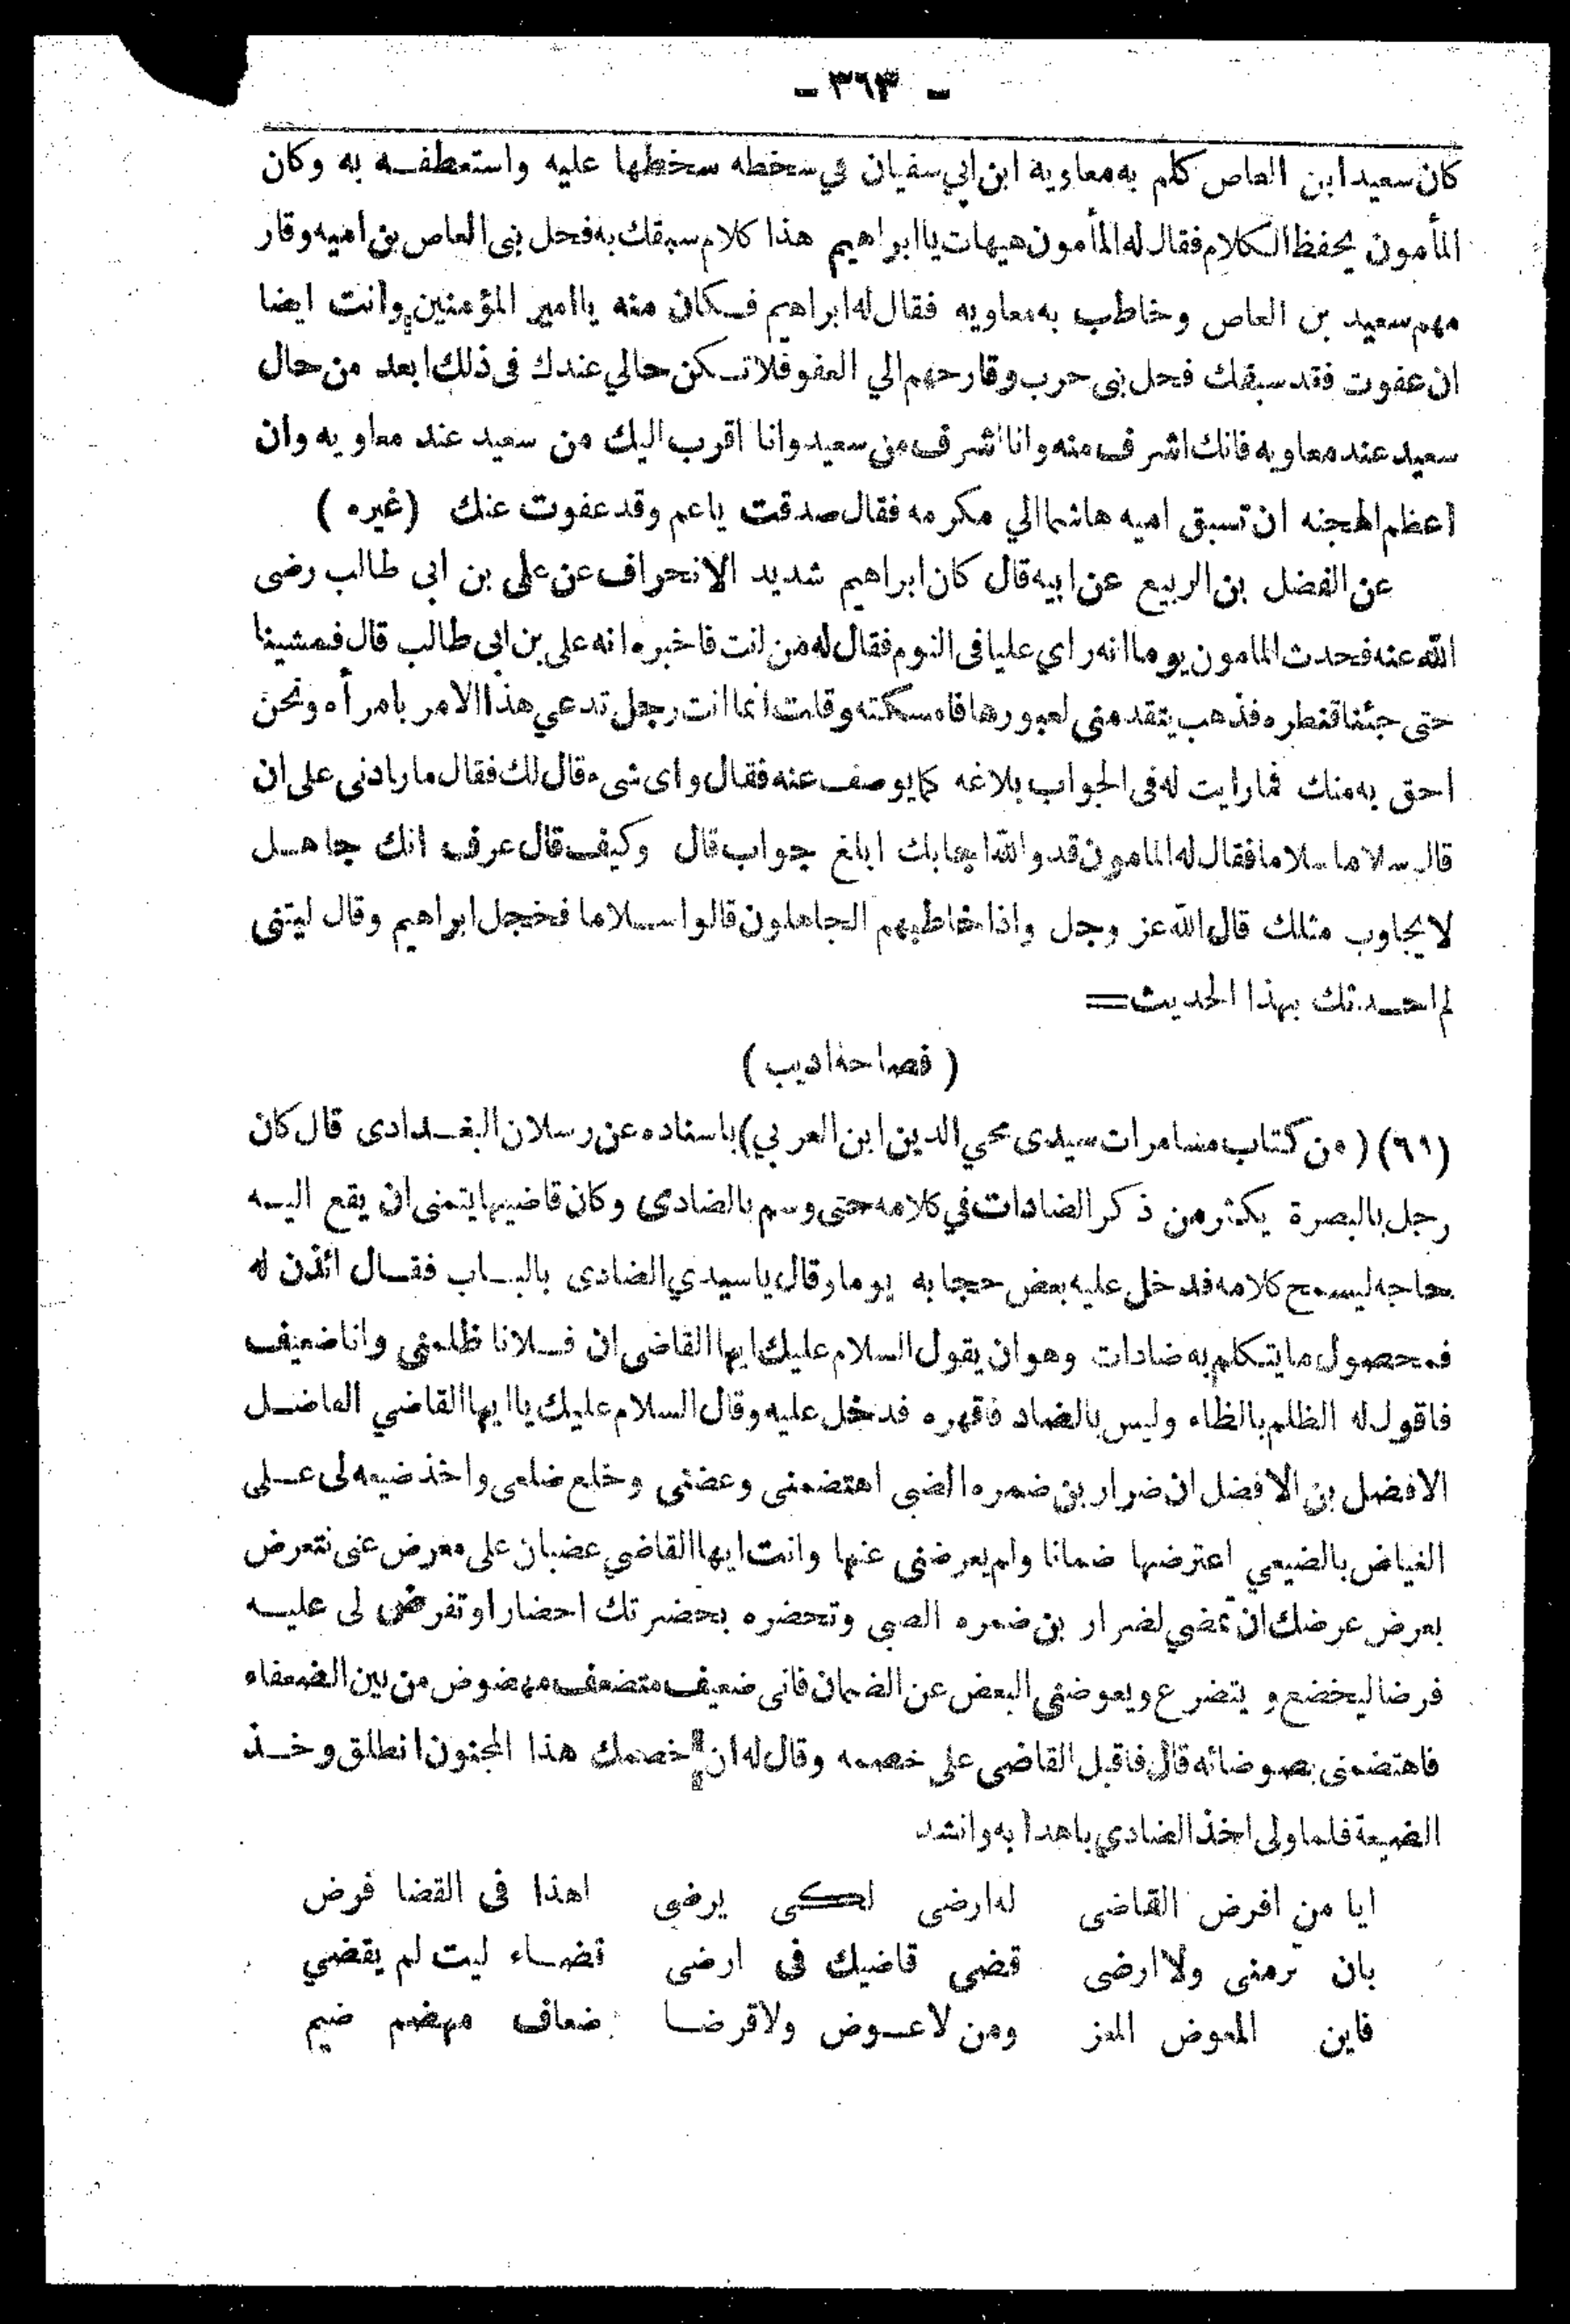 - ٣٦٣ -
كان سعيد ابن العاص كلم به معاوية ابن ابي سفيان في سخطه سخطها عليه واستعطفه به وكان
المأمون يحفظ الكلام فقال له المأمون هيهات يا ابراهيم هذا كلام سبقك به فحل بني العاص بن اميه وقار
مهم سعيد بن العاص وخاطب به معاويه فقال له ابراهيم فكان منه يا امير المؤمنين وانت ايضا
ان عفوت فقد سبقك فحل بني حرب وقارحهم الي العفو فلا تكن حالي عندك فى ذلك ابعد من حال
سعيد عند معاويه فانك اشرف منه وانا اشرف من سعيد وانا اقرب اليك من سعيد عند معاويه وان
اعظم الهجنه ان تسبق اميه هاشما الي مكرمه فقال صدقت ياعم وقد عفوت عنك (غيره)
عن الفضل بن الربيع عن ابيه قال كان ابراهيم شديد الانحراف عن على بن ابى طالب رضى
الله عنه فحدث المامون يوما انه راي عليا فى النوم فقال له من انت فاخبره انه على بن ابى طالب قال فمشينا
حتى جئنا قنطره فذهب يتقدمنى لعبورها فامسكته وقلت انما انت رجل تدعي هذا الامر بامرأه ونحن
احق به منك فما رايت له فى الجواب بلاغه كما يوصف عنه فقال واى شىء قال لك فقال مازادنى على ان
قال سلاما سلاما فقال له المامون قد والله اجابك ابلغ جواب قال وكيف قال عرف انك جاهل
لا يجاوب مثلك قال الله عز وجل واذا خاطبهم الجاهلون قالوا سلاما فخجل ابراهيم وقال ليتنى
لم احدثك بهذا الحديث =
( فصاحة اديب )
(٦١) ( من كتاب مسامرات سيدى محي الدين ابن العربي) باسناده عن رسلان البغدادى قال كان
رجل بالبصرة يكثر من ذكر الضادات في كلامه حتى وسم بالضادى وكان قاضيها يتمنى ان يقع اليه
بحاجه ليسمع كلامه فدخل عليه بعض حجابه يوما وقال يا سيدي الضادى بالباب فقال ائذن له
فمحصول ما يتكلم به ضادات وهو ان يقول السلام عليك ايها القاضى ان فلانا ظلمنى وانا ضعيف
فاقول له الظلم بالظاء وليس بالضاد فاقهره فدخل عليه وقال السلام عليك يا ايها القاضي الفاضل
الافضل بن الافضل ان ضرار بن ضمره الضبى اهتضمنى وعضنى وخلع ضلعى واخذ ضيعه لى على
الغياض بالضيعي اعترضها ضمانا ولم يعرضنى عنها وانت ايها القاضي عضبان على معرض عنى نتعرض
بعرض عرضك ان تمضي لضرار بن ضمره الصبى وتحضره بحضرتك احضارا وتفرض لى عليه
فرضا ليخضع و يتضرع ويعوضنى البعض عن الضمان فانى ضعيف متضعف مهضوض من بين الضعفاء
فاهتضمنى بصوضائه قال فاقبل القاضى على خصمه وقال له ان خصمك هذا المجنون انطلق وخذ
الضيعة فلما ولى اخذ الضادي باهدابه وانشد
ايا من افرض القاضى له ارضى لكى يرضى اهذا فى القضا فرض
بان ترمنى ولا ارضى قضى قاضيك فى ارضى قضاء ليت لم يقضي
فاين المعوض المعز ومن لا عوض ولا قرضا ضعاف مهضم ضيم